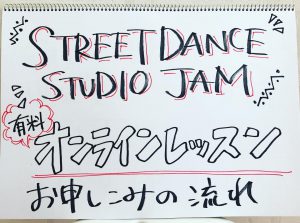 STREET DANCE
STUDIO JAM
有料
オンラインレッスン
お申しこみの流れ